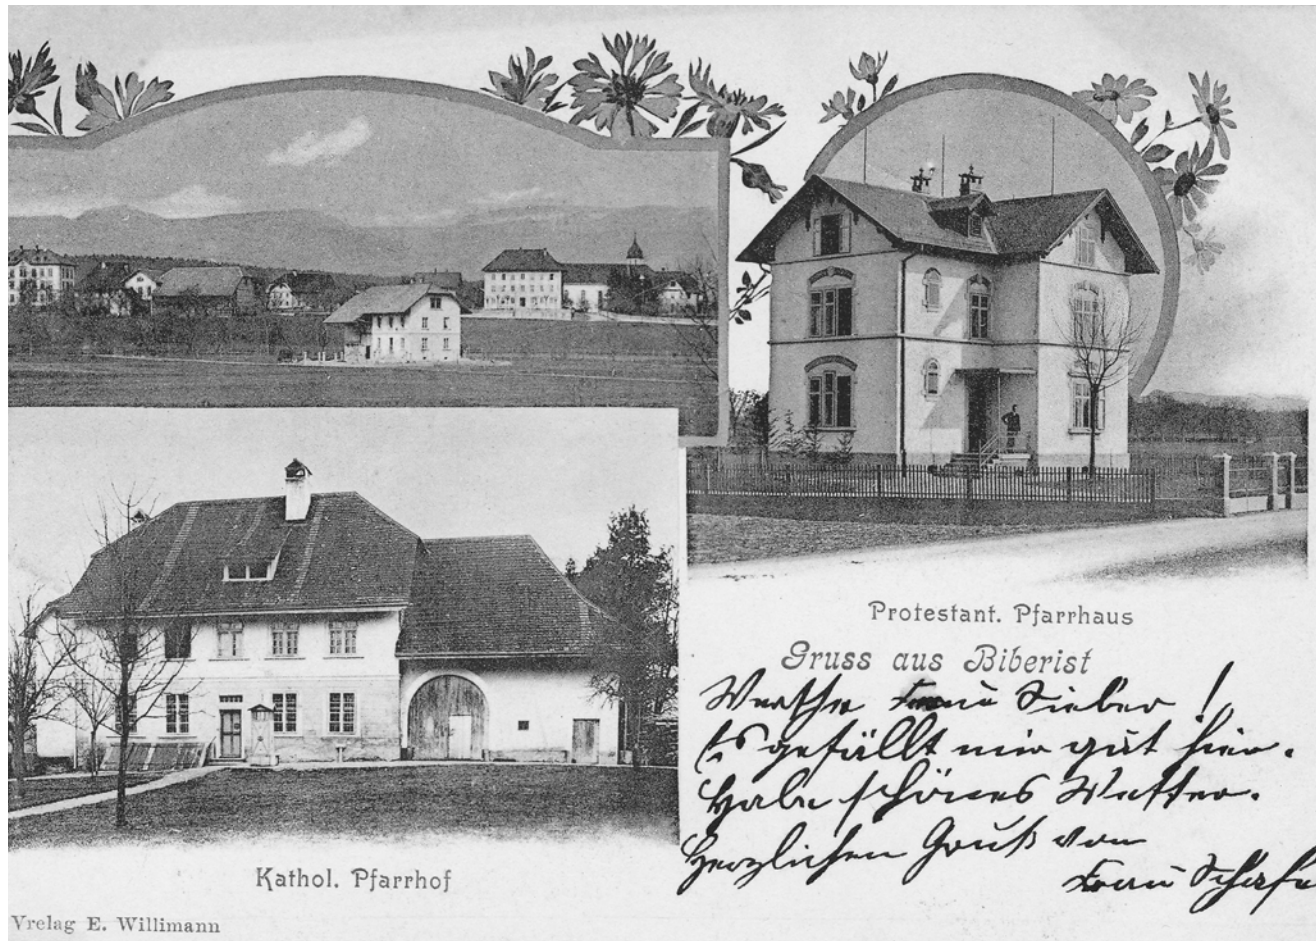 Protestant. Pfarrhaus
Gruss aus Biberist
Werthe Frau Sieber!
Es gefällt mir gut hier.
Habe schönes Wetter.
Herzlichen Gruß von
Frau
Kathol. Pfarrhof
Vrelag E. Willimann